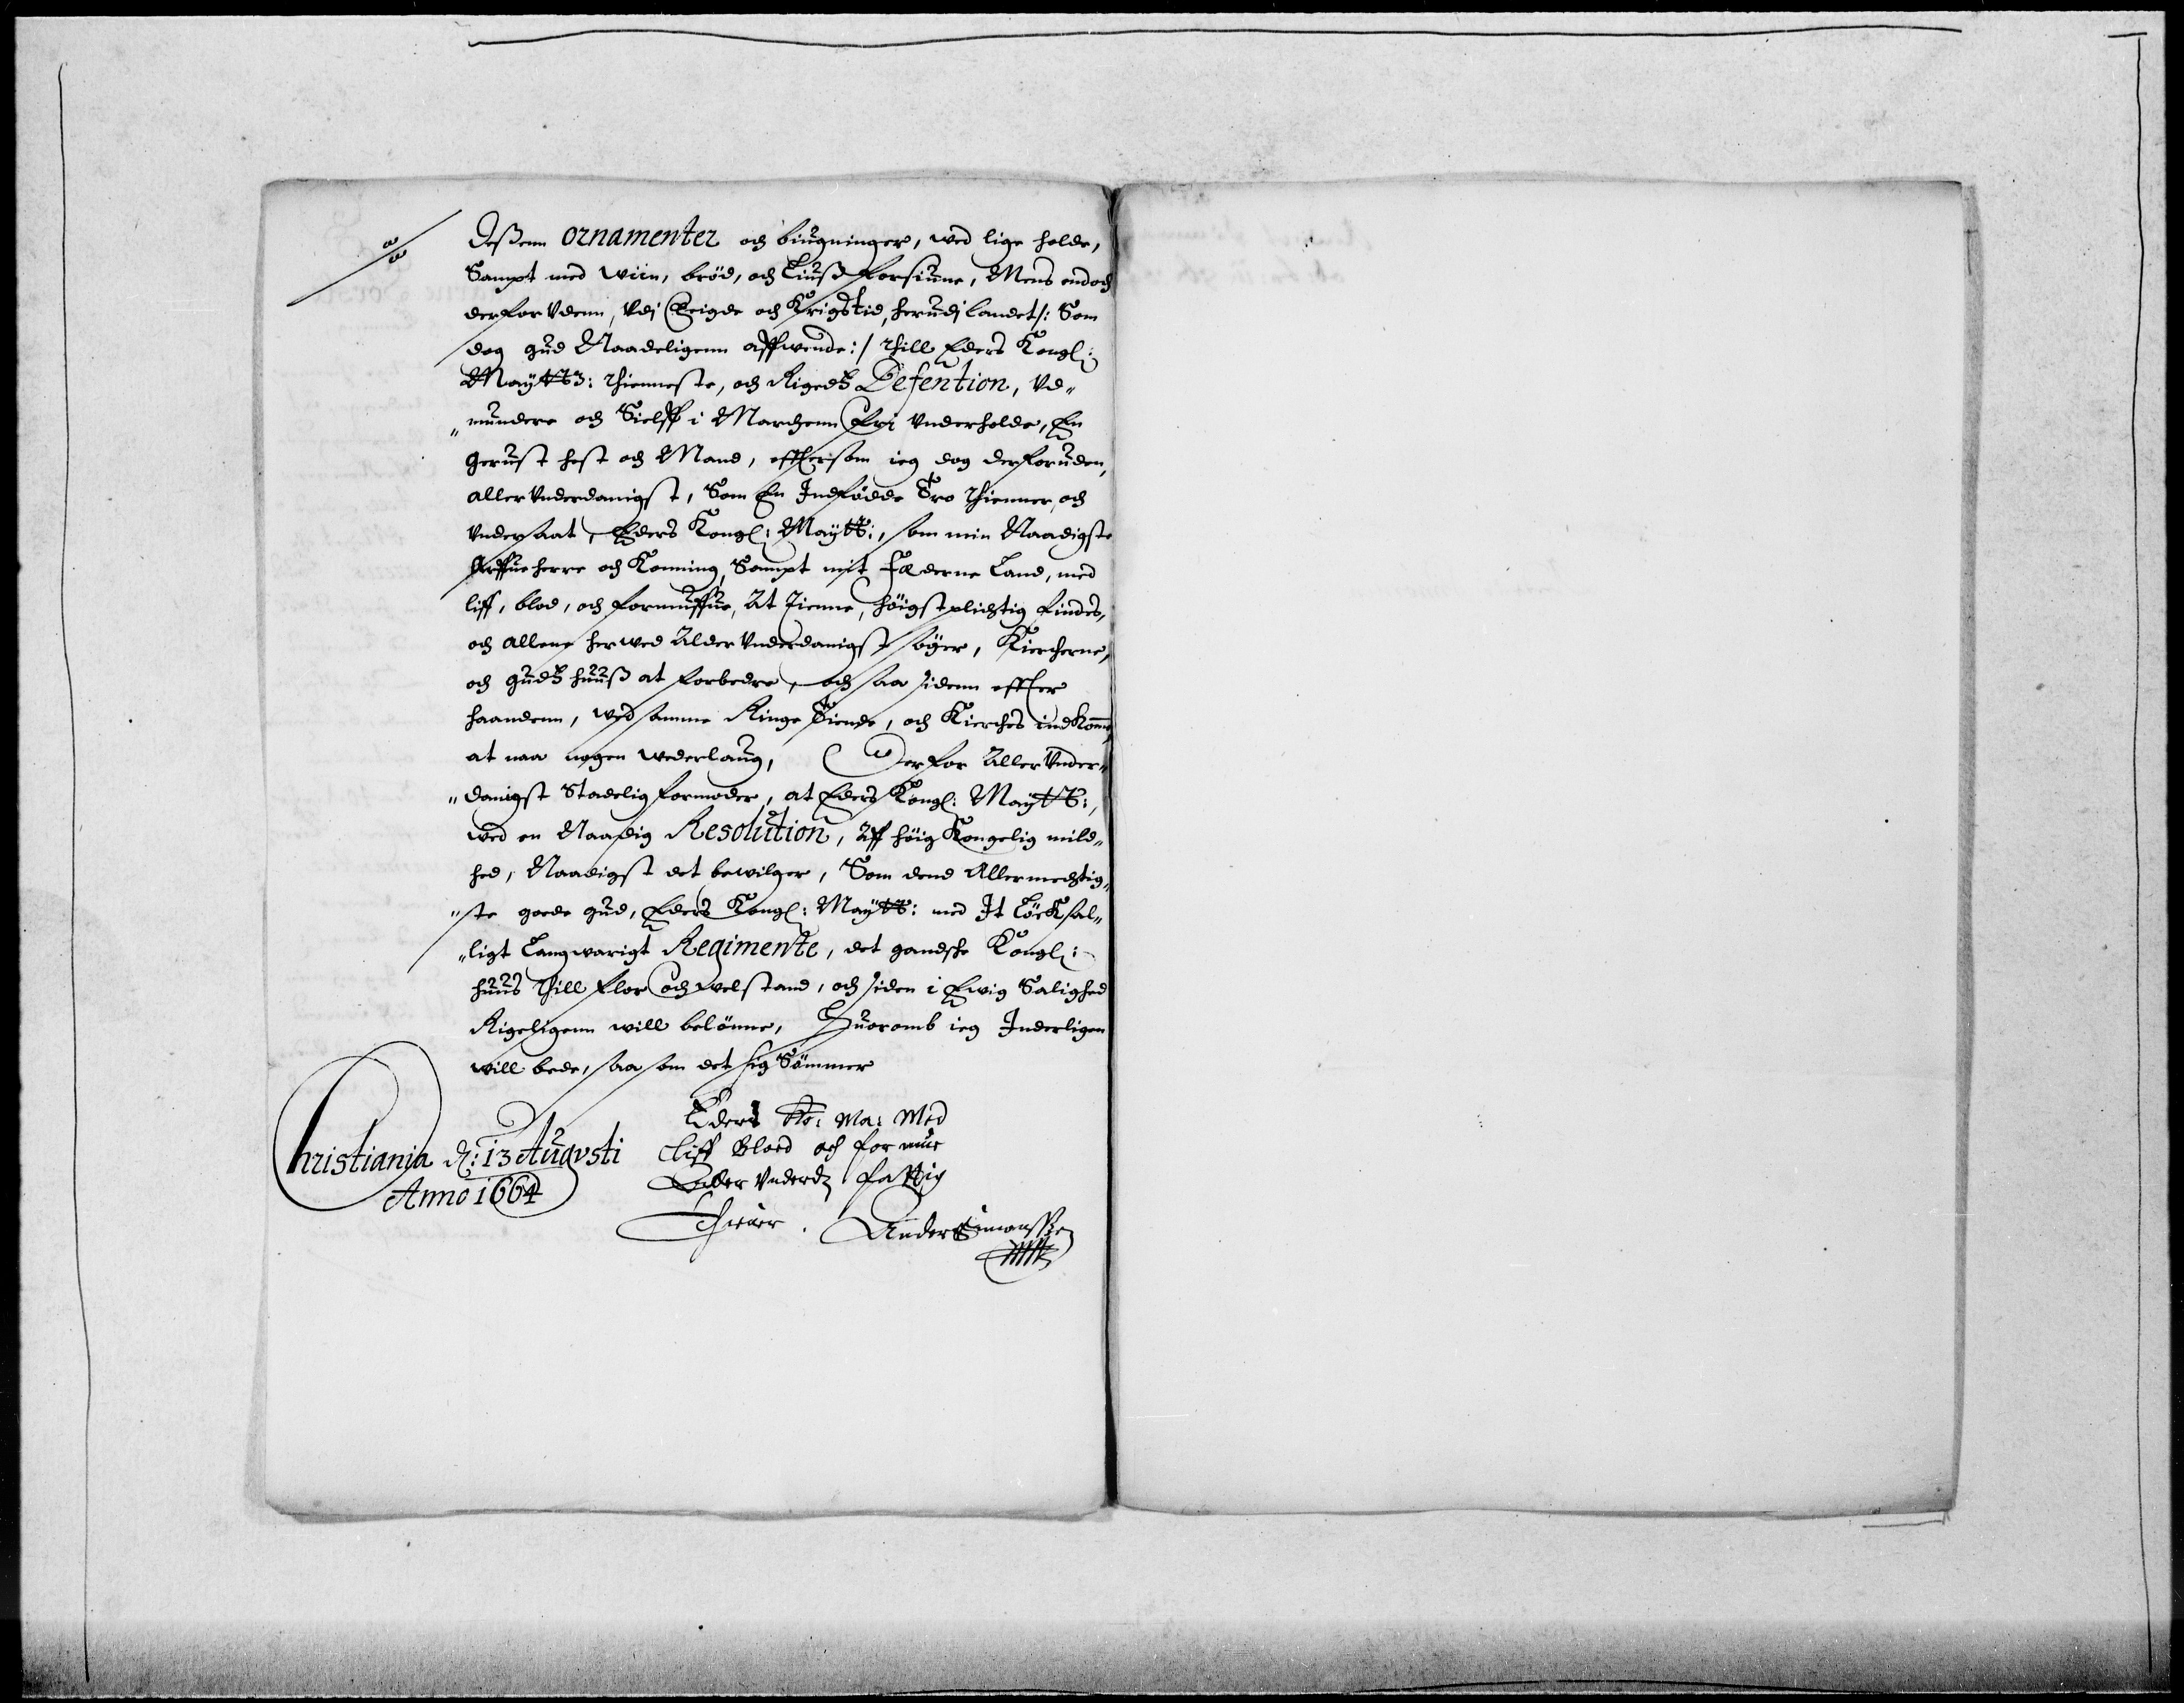 Deßenn Ornamenter och biugninger, wed lige holde,
Sampt med wiin, brød, och Liuß forsiune, Mens endoch
derforvdenn, vdj Feigde och Krigstid, herudj landet /: Som
dog gud Naadeligenn affwende :/ thill Eders Kongl:
Maÿttz: thienneste, och Rigedtz Defention, vd„
„mundere och Sielff i Marchenn frj vnderholde, En
gerust hest och Mand, efftersom ieg dog derforuden,
allervnderdanigst, Som En Indfødde Tro thienner, och
vndersaat, Eders Kongl: Maÿtt:, som min Naadigste
Arffueherre och Konning, Sampt mit Fæderne Land, med
liff, blod, och formuffue, At tienne, høigstplichtig findes,
och allene herwed Aldervnderdanigst søger, Kiercherne,
och gudtz huuß at forbedre, och saa sidenn effter
haandenn, wed samme Ringe Tiende, och Kierches indkomme,
at naa nogen wederlaug, Derfor Allervnder„
„danigst Stadelig formoder, at Eders Kongl: Maÿtt:,
wed en Naadig Resolution, Aff høig Kongelig mild„
hed, Naadigst det bewilger, Som dend Allermechtig„
„ste goede gud, Eders Kongl: Maÿtt: med It løcksal„
„ligt Langwarigt Regimente, det gandske Kongl:
huus thill flor och welstand, och siden i Ewig Salighed
Rigeligenn will belønne, Huoromb ieg Inderligen
will bede, saa som det sig Sømmer
Eders Ko: Ma: Med
Christiania d: 13 Augusti Liff Bloed och formue
Anno 1664 Aller vnderd fattig
Thiener. Anders Simonssen